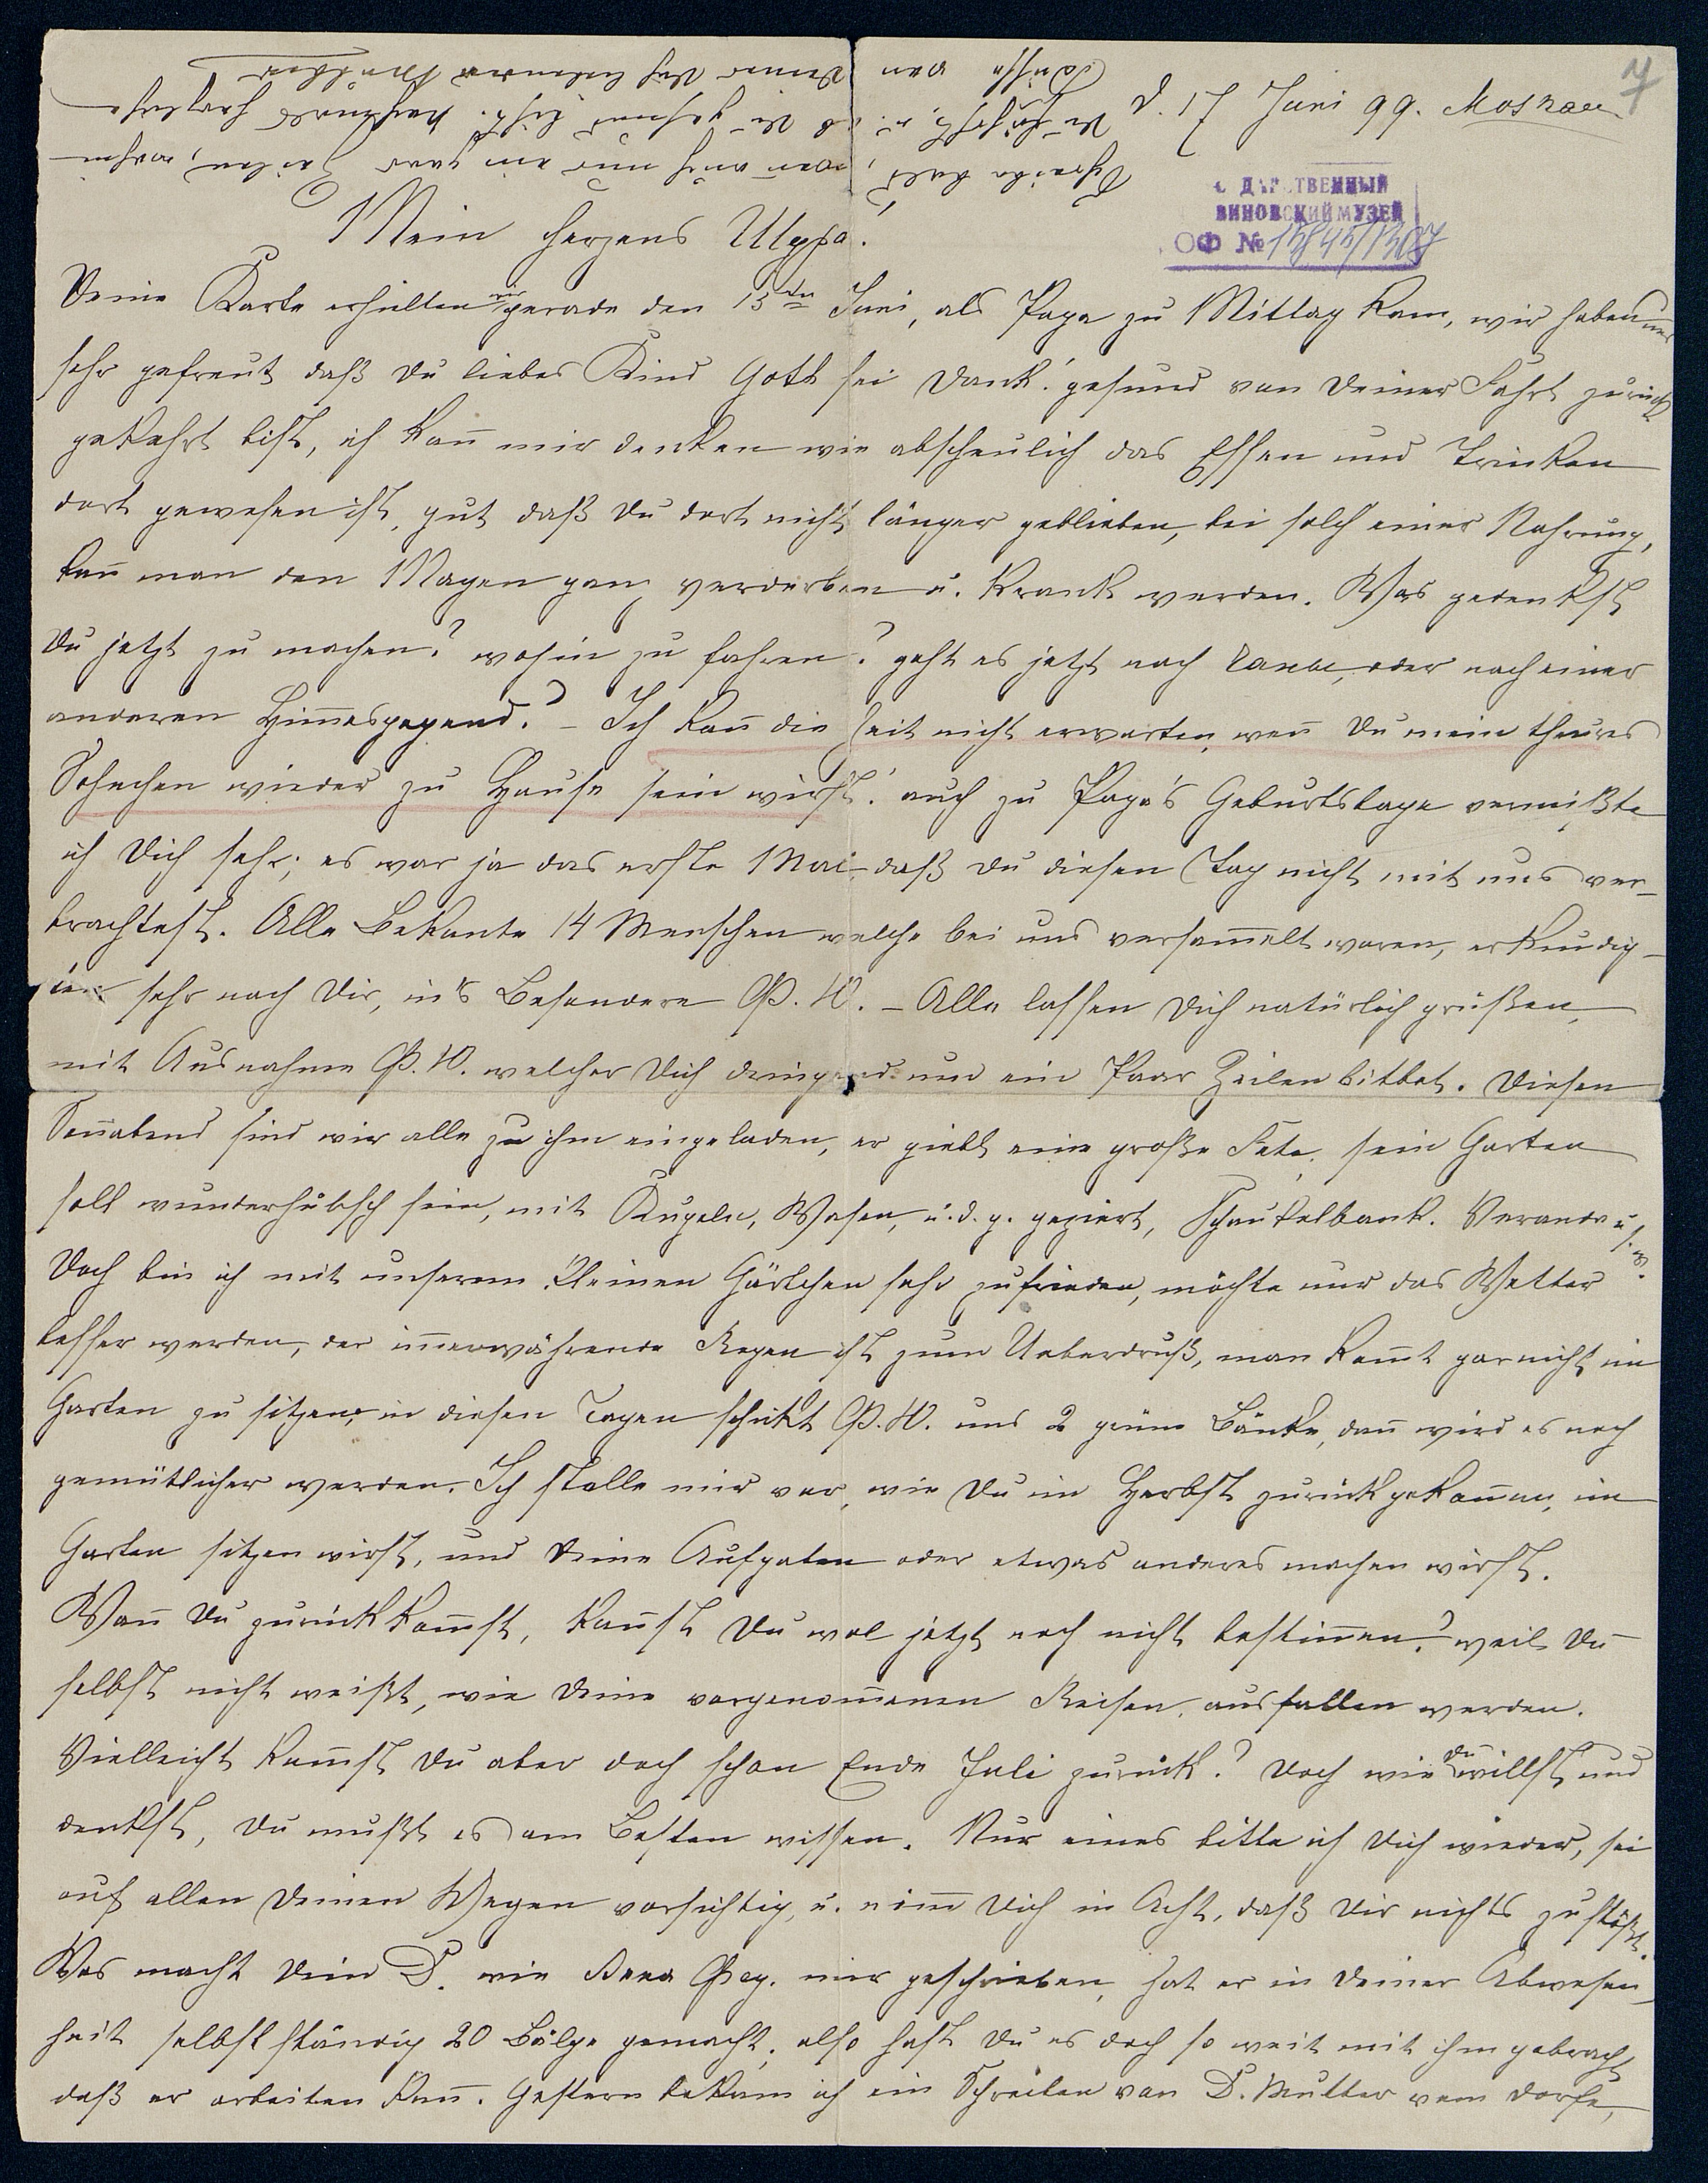 7
d. 17 Juni 99. Moskau.
ДАРСТВЕННЫЙ
ВИНОВСКИЙ МУЗЕЙ
ОФ №
Schreibe bald, wenn auch nur ein paar Zeilen, wohin
Du fährst u. ob Du gesund bist. Nochmals herzliche
Küsse von Deiner Dich liebenden Mutter
Mein herzens
Deine Karte erhielten wir gerade den 15ten Juni, als Papa zu Mittag kam, wir haben uns
sehr gefreut daß Du liebes Kind Gott sei Dank! gesund von Deiner Fahrt zurück
gekehrt bist, ich kan̄ mir denken wie abscheulich das Essen und Trinken
dort gewesen ist, gut daß Du dort nicht länger geblieben, bei solch einer Nahrung,
kan̄ man den Magen ganz verderben u. krank werden. Was gedenkst
Du jetzt zu machen? wohin zu fahren? geht es jetzt nach oder nach einer
anderen Him̄elsgegend? – Ich kan̄ die Zeit nicht erwarten, wen̄ Du mein theures
Sohnchen wieder zu Hause sein wirst! auch zu Papa's Geburtstage vermißte
ich Dich sehr; es war ja das erste Mal daß Du diesen Tag nicht mit uns ver-
brachtest. Alle Bekante 14 Menschen welche bei uns versam̄elt waren, erkundig-
ten sehr nach Dir, in's Besondere Ф. W. – Alle lassen Dich natürlich grüßen,
mit Ausnahme Ф. W. welcher Dich dringend um ein Paar Zeilen bittet. Diesen
Son̄abend sind wir alle zu ihm eingeladen, er giebt eine große Fete, sein Garten
soll wunderhübsch sein, mit Kugeln, Wasen, u. d. g. geziert, Schaukelbank. Veranda u. s. w.
Doch bin ich mit unserem kleinen Gärtchen sehr zufrieden, möchte nur das Wetter
besser werden, der im̄erwährende Regen ist zum Ueberdruß, man kom̄t gar nicht im
Garten zu sitzen; in diesen Tagen schickt Ф. W. uns 2 grüne Bänke, dan̄ wird es noch
gemütlicher werden. Ich stelle mir vor, wie Du im Herbst zurückgekom̄en, im
Garten sitzen wirst, und Deine Aufgaben oder etwas anderes machen wirst.
Wan̄ Du zurück kom̄st, kan̄st Du wol jetzt noch nicht bestim̄en? weil Du
selbst nicht weißt, wie Deine vorgenom̄enen Reisen, ausfallen werden.
Vielleicht kom̄st Du aber doch schon Ende Juli zurück? Doch wie Du willst und
denkst, Du mußt es am Besten wissen. Nur eines bitte ich Dich wieder, sei
auf allen Deinen Wegen vorsichtig, u. nim̄ Dich in Acht, daß Dir nichts zustößt.
Was macht Dein D. wie Анна mir geschrieben, hat er in Deiner Abwesen-
heit selbstständig 20 Bälge gemacht, also hast Du es doch so weit mit ihm gebracht
daß er arbeiten kan̄. Gestern bekam ich ein Schreiben von D. Mutter vom Dorfe,